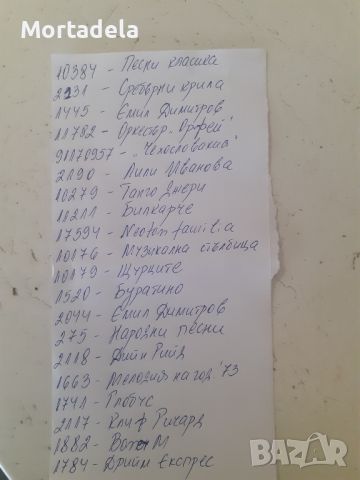 Mortadela
10384 - Песни класика
2231 - Сребърни крила
1445 - Емил Димитров
11782 - Оркестър "Орфей"
91170957 - "Чехословакия"
2190 - Лили Иванова
10279 - Танго Джери
11211 - Билкарче
17594 - Neoton familia
10176 - Музикална стълбица
10179 - Щурците
1520 - Буратино
2044 - Емил Димитров
275 - Народни песни
2118 - Дийн Рийд
1663 - Мелодия на год. '73
1741 - Глобус
2117 - Клиф Ричард
1882 - М
1784 - Дрийм Експрес
BAZAR
bg